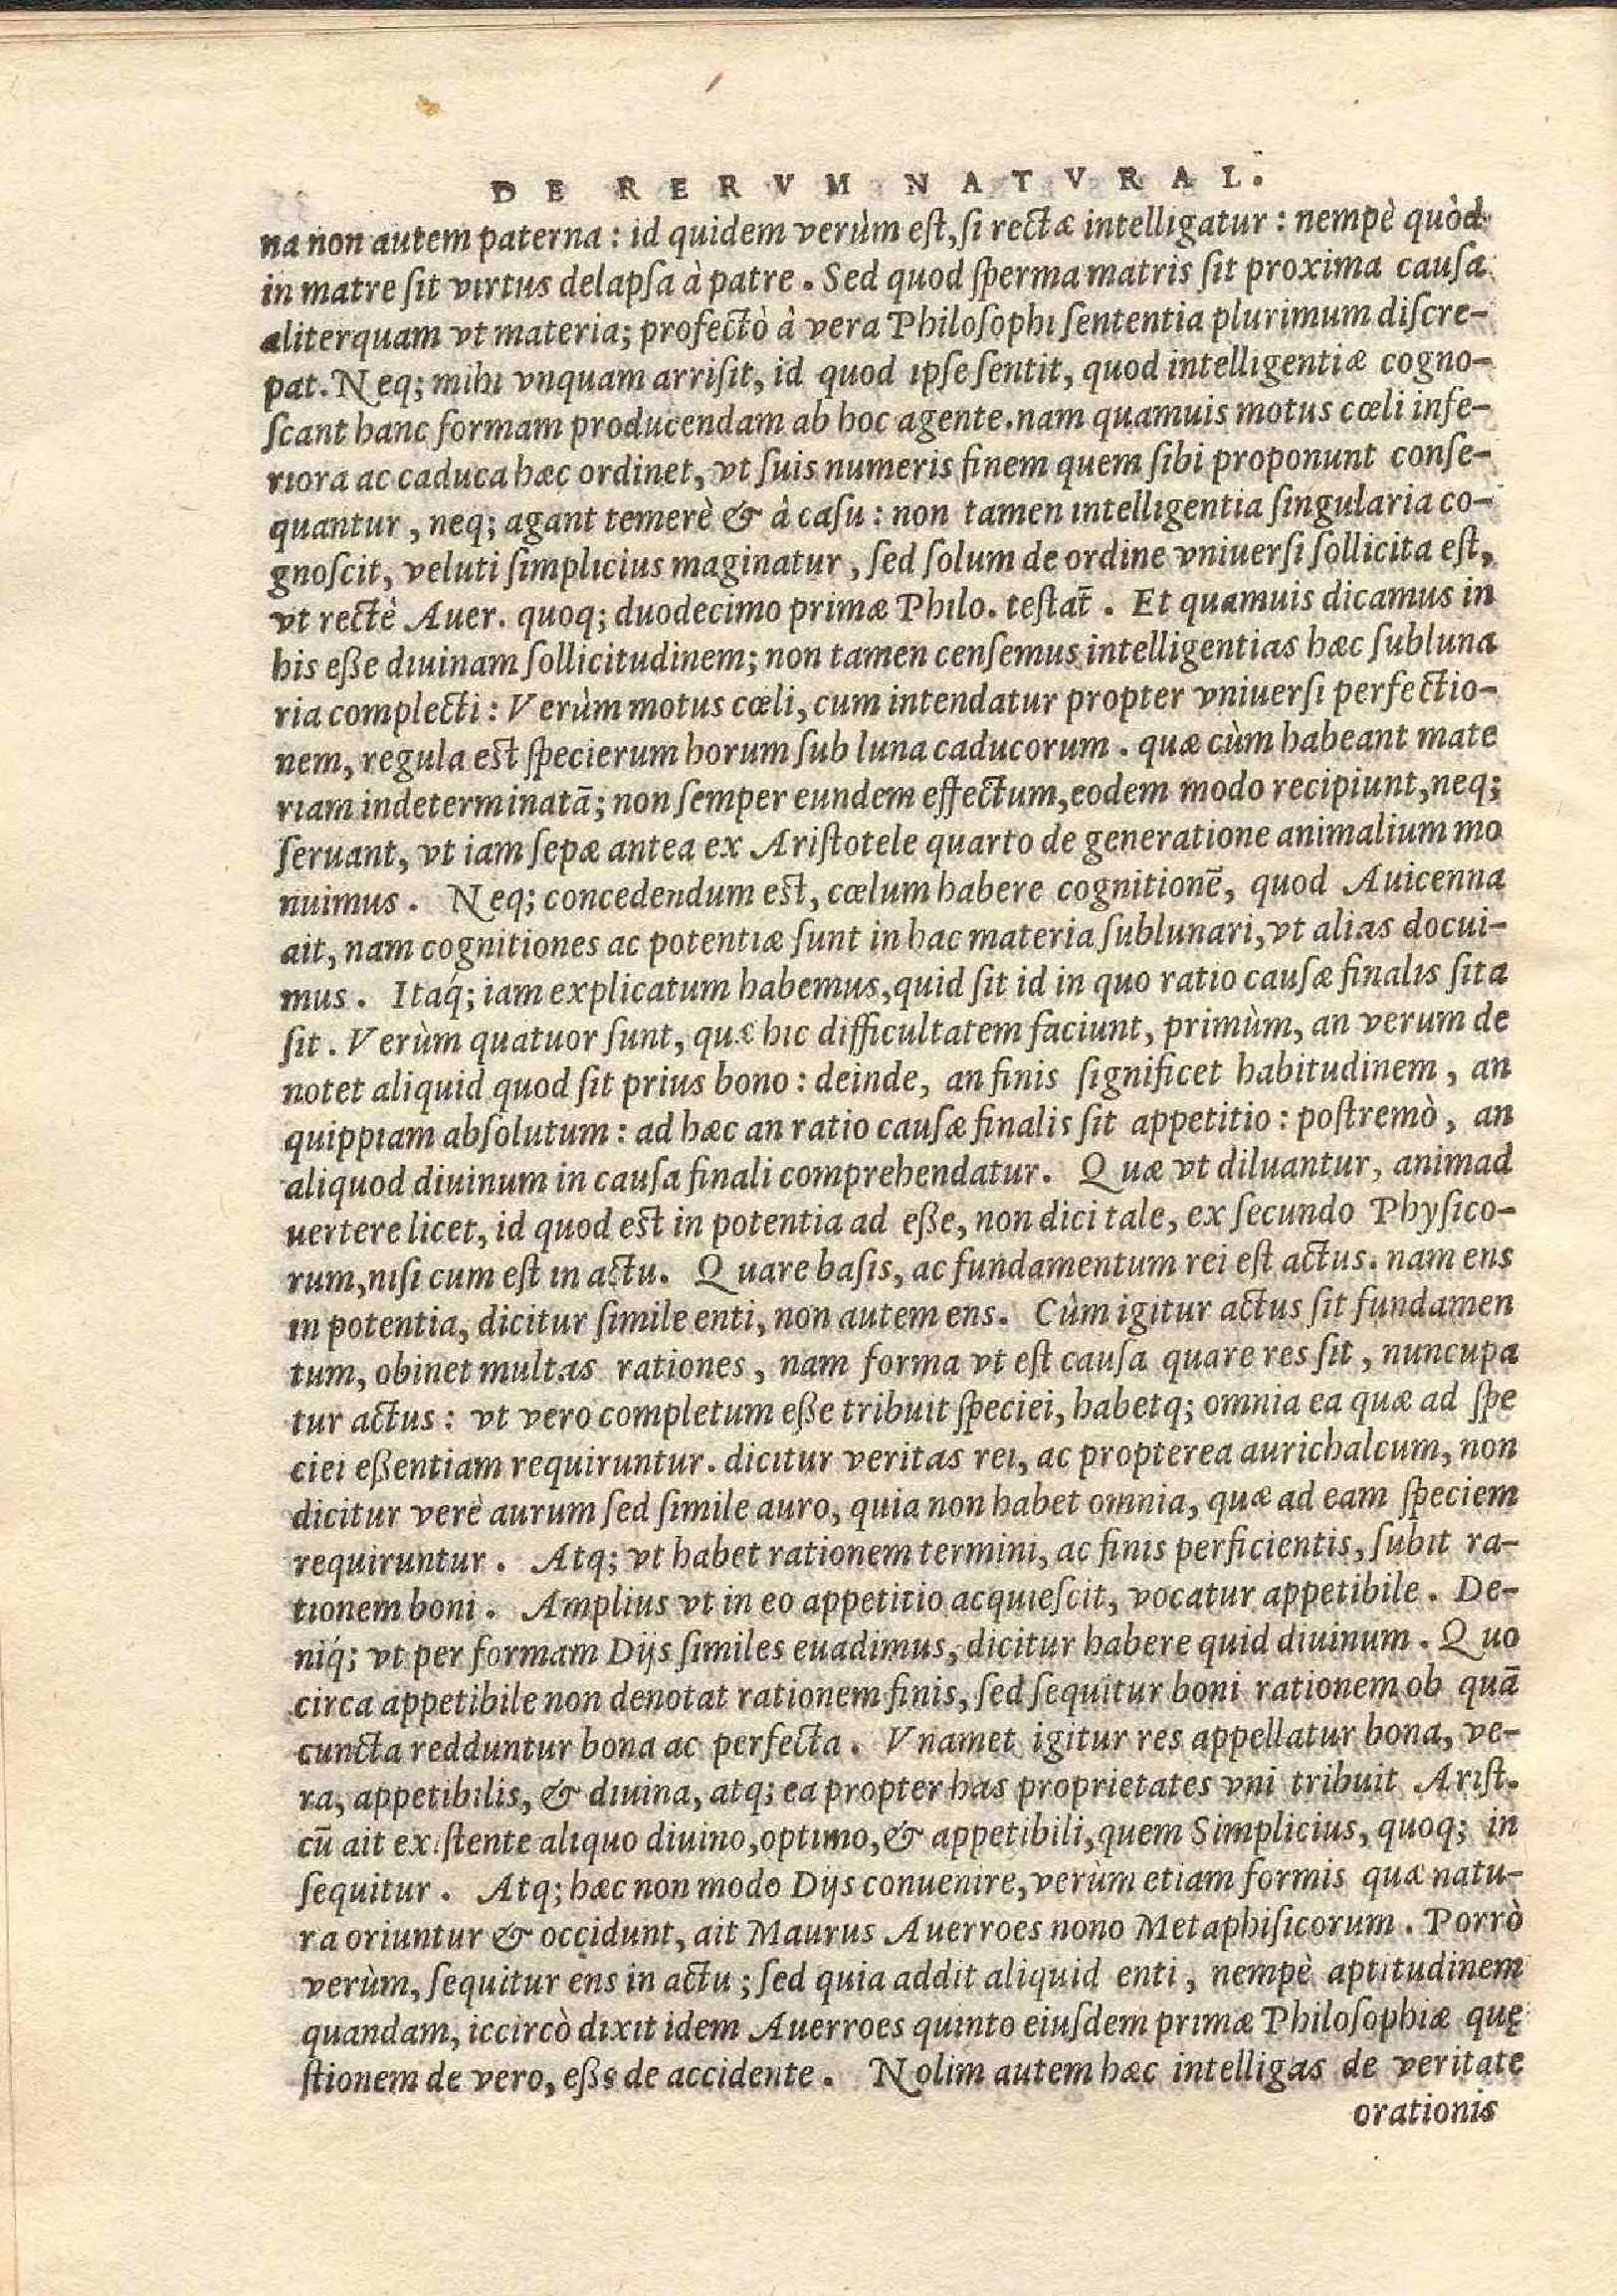 DE RERVM NATVRAL.
na non autem paterna: id quidem verùm est, si rectæ intelligatur: nempè quòd
in matre sit virtus delapsa à patre. Sed quod sperma matris sit proxima causa
aliterquam vt materia; profectò à vera Philosophi sententia plurimum discre-
pat. Neq; mihi vnquam arrisit, id quod ipse sentit, quod intelligentiæ cogno-
scant hanc formam producendam ab hoc agente. nam quamuis motus cœli infe-
riora ac caduca hæc ordinet, vt suis numeris finem quem sibi proponunt conse-
quantur, neq; agant temerè & à casu: non tamen intelligentia singularia co-
gnoscit, veluti simplicius maginatur, sed solum de ordine vniuersi sollicita est,
vt rectè Auer. quoq; duodecimo primæ Philo. testat̄. Et quamuis dicamus in
his eße diuinam sollicitudinem; non tamen censemus intelligentias hæc subluna
ria complecti: Verùm motus cœli, cum intendatur propter vniuersi perfectio-
nem, regula est specierum horum sub luna caducorum. quæ cùm habeant mate
riam indeterminatā; non semper eundem effectum, eodem modo recipiunt, neq;
seruant, vt iam sepæ antea ex Aristotele quarto de generatione animalium mo
nuimus. Neq; concedendum est, cœlum habere cognitionē, quod Auicenna
ait, nam cognitiones ac potentiæ sunt in hac materia sublunari, vt alias docui-
mus. Itaq́; iam explicatum habemus, quid sit id in quo ratio causæ finalis sita
sit. Verùm quatuor sunt, quæ hic difficultatem faciunt, primùm, an verum de
notet aliquid quod sit prius bono: deinde, an finis significet habitudinem, an
quippiam absolutum: ad hæc an ratio causæ finalis sit appetitio: postremò, an
aliquod diuinum in causa finali comprehendatur. Quæ vt diluantur, animad
uertere licet, id quod est in potentia ad eße, non dici tale, ex secundo Physico-
rum, nisi cum est in actu. Quare basis, ac fundamentum rei est actus. nam ens
in potentia, dicitur simile enti, non autem ens. Cùm igitur actus sit fundamen
tum, obinet multas rationes, nam forma vt est causa quare res sit, nuncupa
tur actus: vt vero completum eße tribuit speciei, habetq; omnia ea quæ ad spe
ciei eßentiam requiruntur. dicitur veritas rei, ac propterea aurichalcum, non
dicitur verè aurum sed simile auro, quia non habet omnia, quæ ad eam speciem
requiruntur. Atq; vt habet rationem termini, ac finis perficientis, subit ra-
tionem boni. Amplius vt in eo appetitio acquiescit, vocatur appetibile. De-
niq́; vt per formam Dijs similes euadimus, dicitur habere quid diuinum. Quo
circa appetibile non denotat rationem finis, sed sequitur boni rationem ob quā
cuncta redduntur bona ac perfecta. Vnamet igitur res appellatur bona, ve-
ra, appetibilis, & diuina, atq; ea propter has proprietates vni tribuit Arist.
cū ait existente aliquo diuino, optimo, & appetibili, quem Simplicius, quoq; in
sequitur. Atq; hæc non modo Dijs conuenire, verùm etiam formis quæ natu-
ra oriuntur & occidunt, ait Maurus Auerroes nono Metaphisicorum. Porrò
verùm, sequitur ens in actu; sed quia addit aliquid enti, nempè aptitudinem
quandam, iccircò dixit idem Auerroes quinto eiusdem primæ Philosophiæ quę
stionem de vero, eßs de accidente. Nolim autem hæc intelligas de veritate
orationis